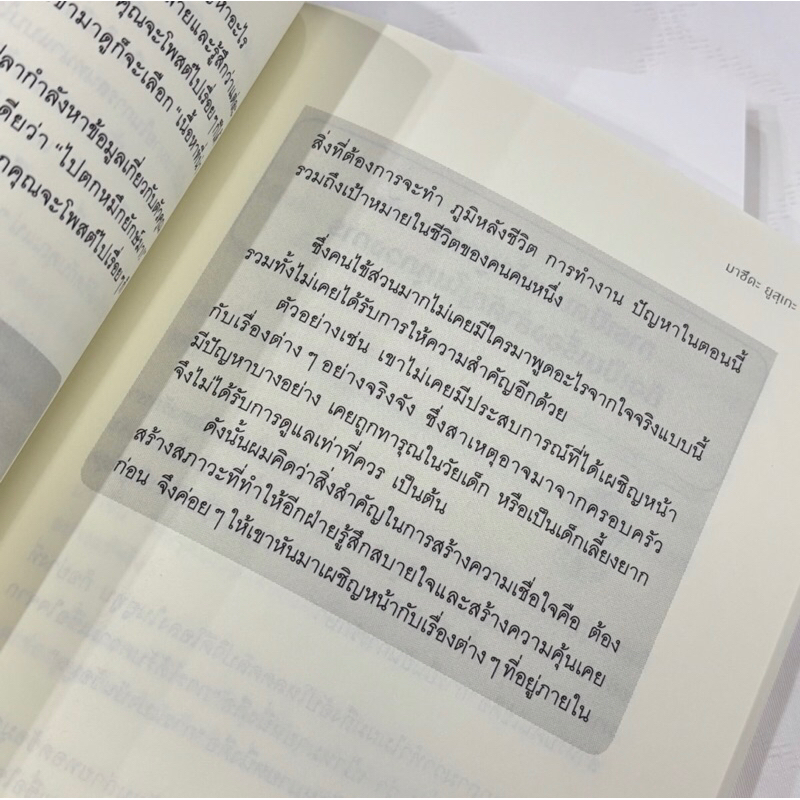 หาอะไร
ายและรู้สึกว่าแต่ละ
คุณจะโพสต์ไปเรื่อยๆ
ข้ามาดูก็จะเลือก "เนื้อหาที่
ลากำลังหาข้อมูลเกี่ยวกับตัว
ดียว่า "ไปตกหมึกยักษ์มา
กคุณจะโพสต์ไปเรื่อยๆ
มาซึดะ ยูสุเกะ
สิ่งที่ต้องการจะทำ ภูมิหลังชีวิต การทำงาน ปัญหาในตอนนี้
รวมถึงเป้าหมายในชีวิตของคนคนหนึ่ง
ซึ่งคนไข้ส่วนมากไม่เคยมีใครมาพูดอะไรจากใจจริงแบบนี้
รวมทั้งไม่เคยได้รับการให้ความสำคัญอีกด้วย
ตัวอย่างเช่น เขาไม่เคยมีประสบการณ์ที่ได้เผชิญหน้า
กับเรื่องต่างๆ อย่างจริงจัง ซึ่งสาเหตุอาจมาจากครอบครัว
มีปัญหาบางอย่าง เคยถูกทารุณในวัยเด็ก หรือเป็นเด็กเลี้ยงยาก
จึงไม่ได้รับการดูแลเท่าที่ควร เป็นต้น
ดังนั้นผมคิดว่าสิ่งสำคัญในการสร้างความเชื่อใจคือ ต้อง
สร้างสภาวะที่ทำให้อีกฝ่ายรู้สึกสบายใจและสร้างความคุ้นเคย
ก่อน จึงค่อยๆ ให้เขาหันมาเผชิญหน้ากับเรื่องต่างๆ ที่อยู่ภายใน